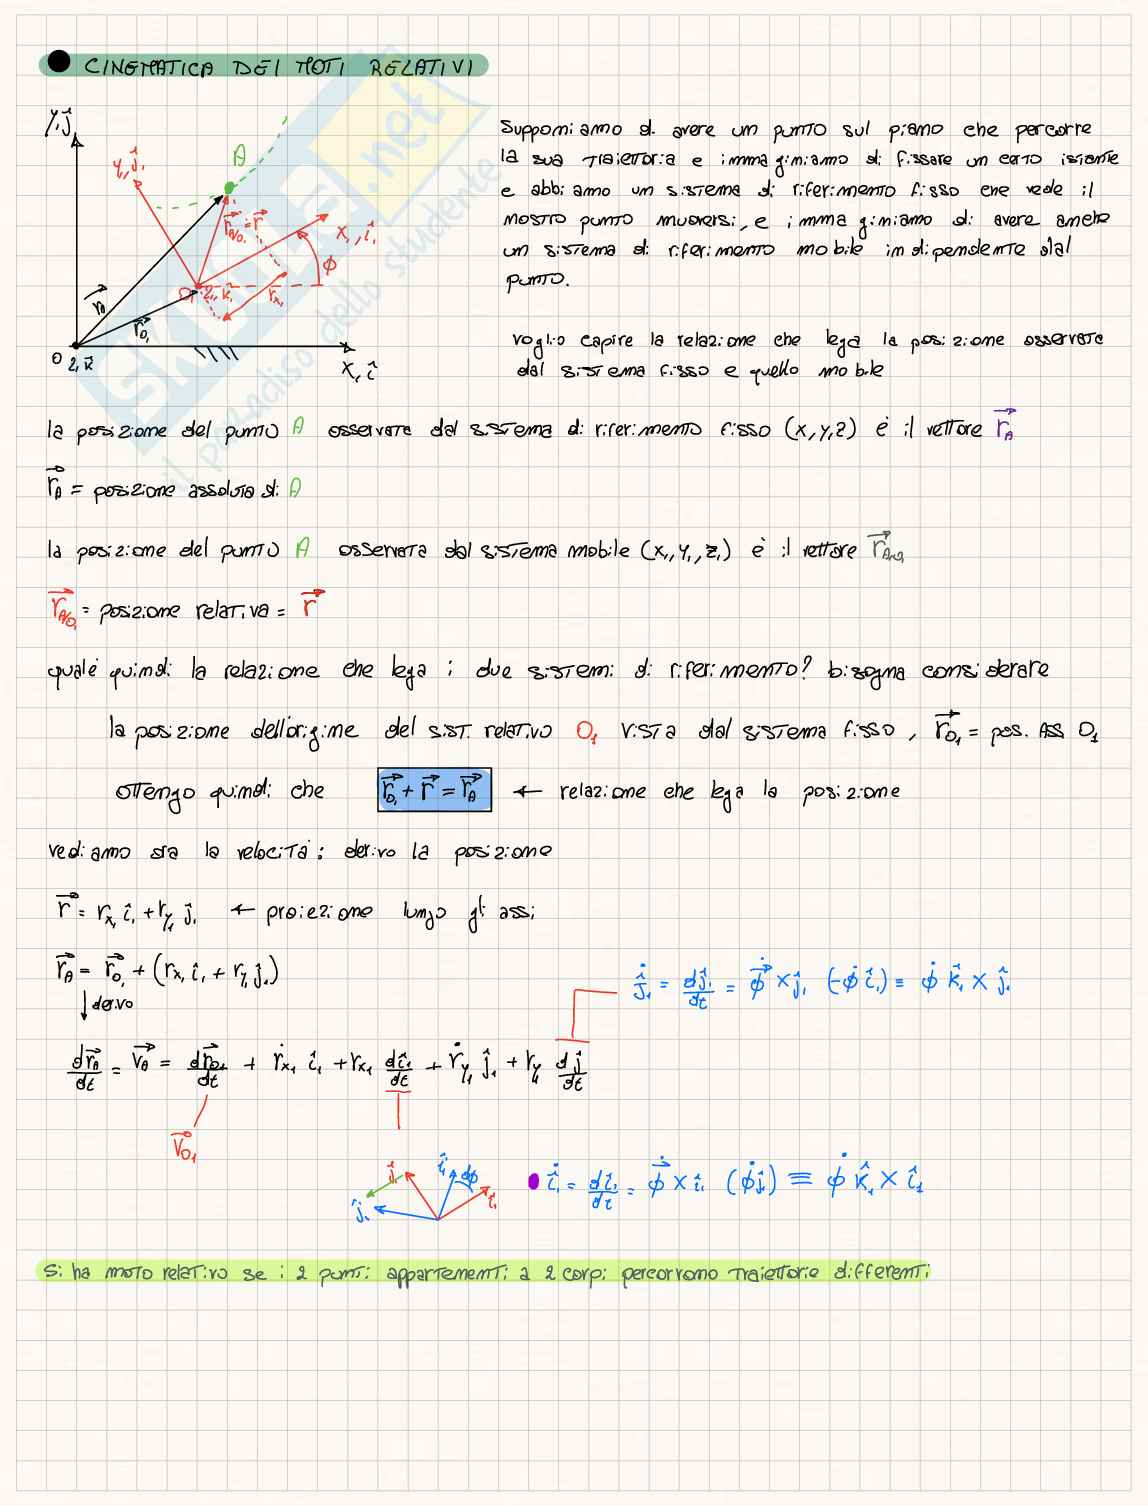 CINEMATICA DEI MOTI RELATIVI
Y, ĵ
A
y₁, ĵ₁
r⃗A/O₁ = r⃗
x₁, î₁
ϕ
O₁ z₁, k̂₁
rx₁
r⃗A
r⃗O₁
O z, k̂
X, î
Supponiamo di avere un punto sul piano che percorre
la sua traiettoria e immaginiamo di fissare un certo istante
e abbiamo un sistema di riferimento fisso che vede il
nostro punto muoversi, e immaginiamo di avere anche
un sistema di riferimento mobile indipendente dal
punto.
voglio capire la relazione che lega la posizione osservata
dal sistema fisso e quello mobile
la posizione del punto A osservata dal sistema di riferimento fisso (x, y, z) è il vettore r⃗A
r⃗A = posizione assoluta di A
la posizione del punto A osservata dal sistema mobile (x₁, y₁, z₁) è il vettore r⃗A/O₁
r⃗A/O₁ = posizione relativa = r⃗
qual'è quindi la relazione che lega i due sistemi di riferimento? bisogna considerare
la posizione dell'origine del sist. relativo O₁ vista dal sistema fisso, r⃗O₁ = pos. ASS O₁
ottengo quindi che r⃗O₁ + r⃗ = r⃗A ← relazione che lega la posizione
vediamo ora la velocità: derivo la posizione
r⃗ = rx₁ î₁ + ry₁ ĵ₁ ← proiezione lungo gli assi
r⃗A = r⃗O₁ + (rx₁ î₁ + ry₁ ĵ₁)
↓ derivo
ĵ̇₁ = dĵ₁/dt = ϕ⃗̇ × ĵ₁ (-ϕ̇ î₁) ≡ ϕ̇ k̂₁ × ĵ₁
dr⃗A/dt = v⃗A = dr⃗O₁/dt + ṙx₁ î₁ + rx₁ dî₁/dt + ṙy₁ ĵ₁ + ry₁ dĵ/dt
v⃗O₁
ĵ₁ î₁' dϕ î₁ ĵ₁'
î̇₁ = dî₁/dt = ϕ⃗̇ × î₁ (ϕ̇ ĵ₁) ≡ ϕ̇ k̂₁ × î₁
Si ha moto relativo se i 2 punti appartenenti a 2 corpi percorrono traiettorie differenti
SKUOLA.net
il paradiso dello studente